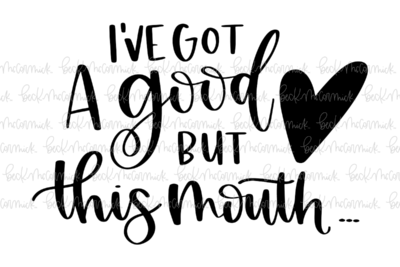 I'VE GOT
A good
BUT
this mouth...